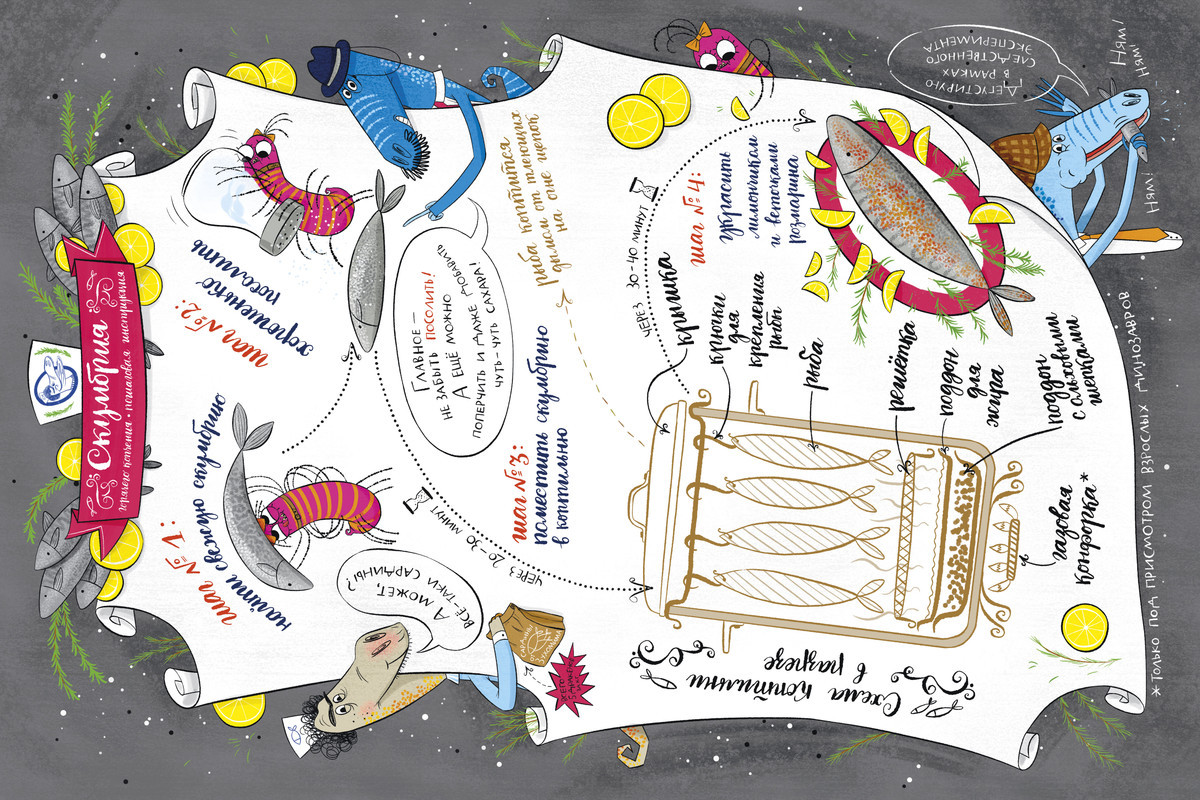 Скумбрия
горячего копчения • пошаговая инструкция
шаг №1:
найти свежую скумбрию
шаг №2:
хорошенько
посолить
Главное —
не забыть посолить!
А ещё можно
поперчить и даже добавить
чуть-чуть сахара!
А может,
всё-таки сардины?
Сардины
через 20-30 минут
шаг №3:
поместить скумбрию
в коптильню
рыба коптится
дымом от тлеющих
на огне щепок
Схема коптильни
в разрезе
крышка
крючки
для
крепления
рыбы
рыба
решётка
поддон
для
жира
поддон
с ольховыми
щепками
газовая
конфорка*
через 30-40 минут
шаг №4:
украсить
лимончиком
и веточками
розмарина
Дегустирую
в рамках
следственного
эксперимента
Ням!
Ням!
Ням!
*только под присмотром взрослых динозавров